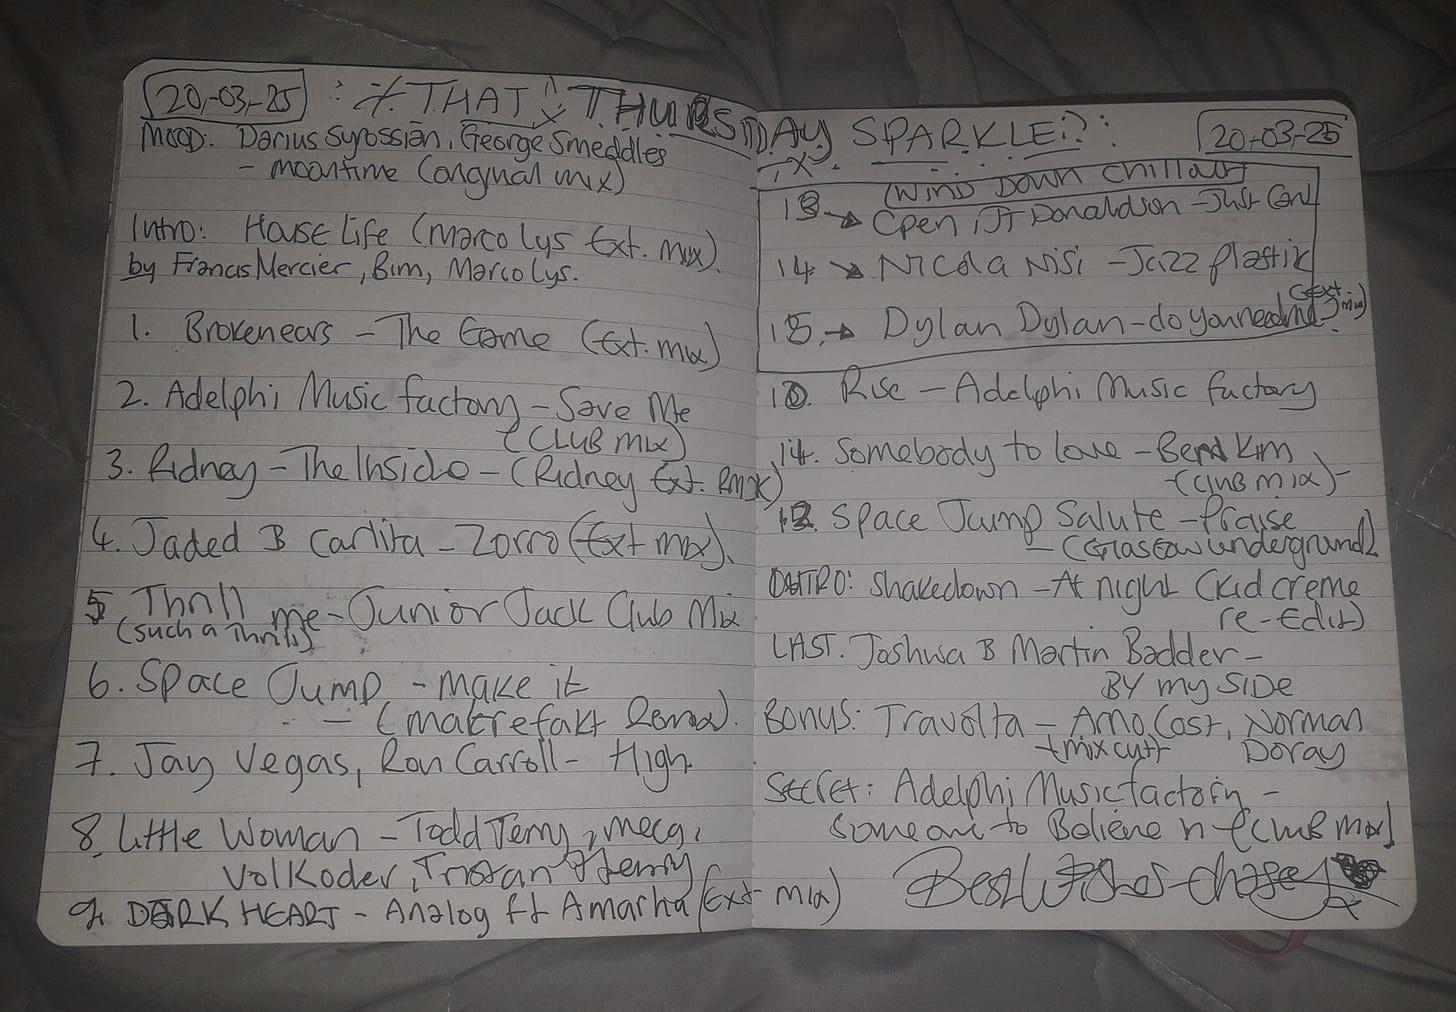 20-03-25 : THAT THURSDAY SPARKLE!?: 20-03-25
MOOD: Darius Syrossian, George Smeddles
- moontime (original mix)
Intro: House Life (Marco Lys Ext. mix).
by Francis Mercier, Bim, Marco Lys.
1. Brokenears - The Game (Ext. mix)
2. Adelphi Music factory - Save Me
(CLUB mix)
3. Ridney - The Inside - (Ridney Ext. Rmx)
4. Jaded B Carlita - Zorro (Ext mix).
5 Thrill me - Junior Jack Club Mix
(such a Thrill)
6. Space Jump - make it
- (makrefakt Remix).
7. Jay Vegas, Ron Carroll - High
8. Little Woman - Todd Terry, meca,
Volkoder, Tristan Henry
9. DARK HEART - Analog ft Amarha (Ext mix)
(WIND DOWN chillout)
13 → Open it Donaldson - Just Can
14 → Nicola Nisi - Jazz plastik
15. → Dylan Dylan - do you need me? (ext. mix)
10. Rise - Adelphi Music factory
14. Somebody to love - Bend Kim
(club mix) -
12. Space Jump Salute - Praise
- (Glasgow underground)
OUTRO: Shakedown - At night (kid creme
re-Edit)
LAST. Joshwa B Martin Badder -
BY my SIDE
Bonus: Travolta - Arno Cost, Norman
+ mix cutt Doray
Secret: Adelphi Music factory -
someone to Believe in - [club mix]
Best Wishes - chasey x